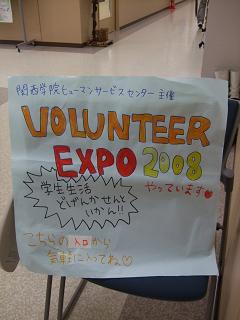 関西学院ヒューマンサービスセンター 主催
VOLUNTEER
EXPO 2008
やっています♥
学生生活
どげんかせんと
いかん!!
こちらの入口から
気軽に入ってね♡